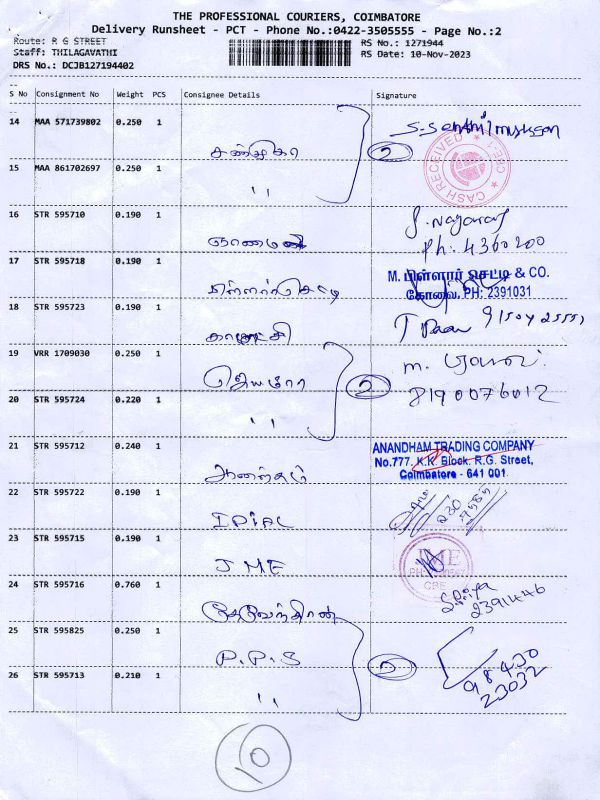 THE PROFESSIONAL COURIERS, COIMBATORE
Delivery Runsheet - PCT - Phone No.:0422-3505555 - Page No.:2
Route: R G STREET
Staff: THILAGAVATHI
DRS No.: DCJB127194402
RS No.: 1271944
RS Date: 10-Nov-2023
S No Consignment No Weight PCS Consignee Details Signature
14 MAA 571739802 0.250 1
2
CASH RECEIVED
CBE-1
15 MAA 861702697 0.250 1
"
16 STR 595710 0.190 1
J. Nagaraj
Ph: 4360200
17 STR 595718 0.190 1
M. பிள்ளார் செட்டி & CO.
கோவை. PH: 2391031
18 STR 595723 0.190 1
காமாட்சி
19 VRR 1709030 0.250 1
2
8190076012
20 STR 595724 0.220 1
"
21 STR 595712 0.240 1
ஆனந்தம்
ANANDHAM TRADING COMPANY
No.777, K.K. Block. R.G. Street,
Coimbatore - 641 001.
22 STR 595722 0.190 1
23 STR 595715 0.190 1
JME
24 STR 595716 0.760 1
தேவேந்திரன்
2391446
25 STR 595825 0.250 1
P.P.S
2
98430
23032
26 STR 595713 0.210 1
"
10